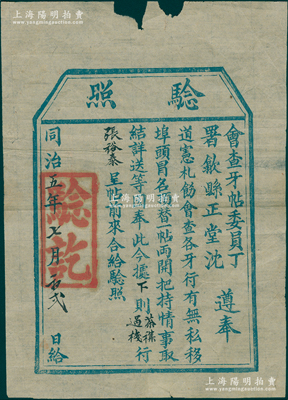 上海阳明拍卖
www.yangmingauction.com
驗照
會查牙帖委員丁
署歙縣正堂沈 遵奉
道憲札飭會查各牙行有無私移
埠頭冒名頂替一帖兩開把持情事取
結詳送等因奉此今據下則
行
張裕泰呈帖前來合給驗照
同治五年七月 日給
驗訖
上海阳明拍卖
www.yangmingauction.com